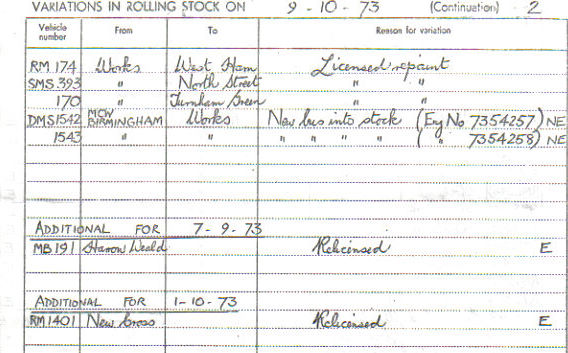 VARIATIONS IN ROLLING STOCK ON 9 - 10 - 73 (Continuation) 2
Vehicle number From To Reason for variation
RM 174 Works West Ham Licensed repaint
SMS 393 " North Street " "
170 " Turnham Green " "
DMS1542 MCW BIRMINGHAM Works New bus into stock (Eng No 7354257) NE
1543 " " " " " " ( " 7354258) NE
ADDITIONAL FOR 7-9-73
MB191 Harrow Weald Relicensed E
ADDITIONAL FOR 1-10-73
RM1401 New Cross Relicensed E